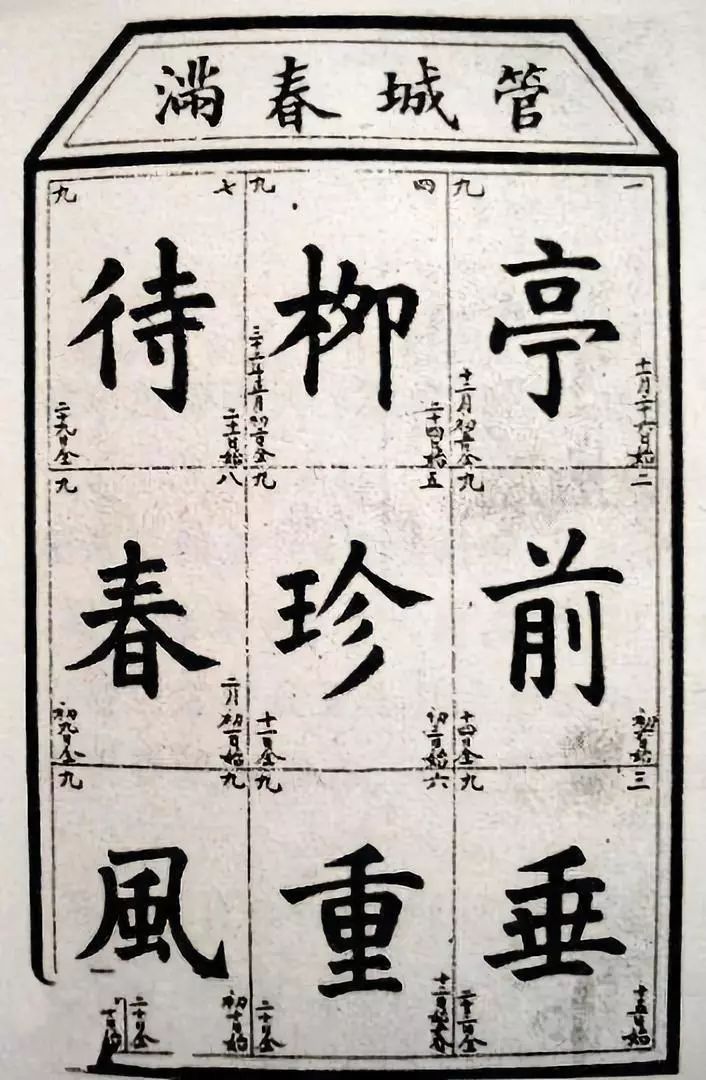 管城春滿
一九
亭
十一月二十六日始
十二月初五日全
二九
前
初六日始
十四日全
三九
垂
十五日始
二十三日全
四九
柳
二十四日始
三十二年正月初二日全
五九
珍
初三日始
十一日全
六九
重
十二日始
二十日全
七九
待
二十一日始
二十九日全
八九
春
二月初一日始
初九日全
九九
風
初十日始